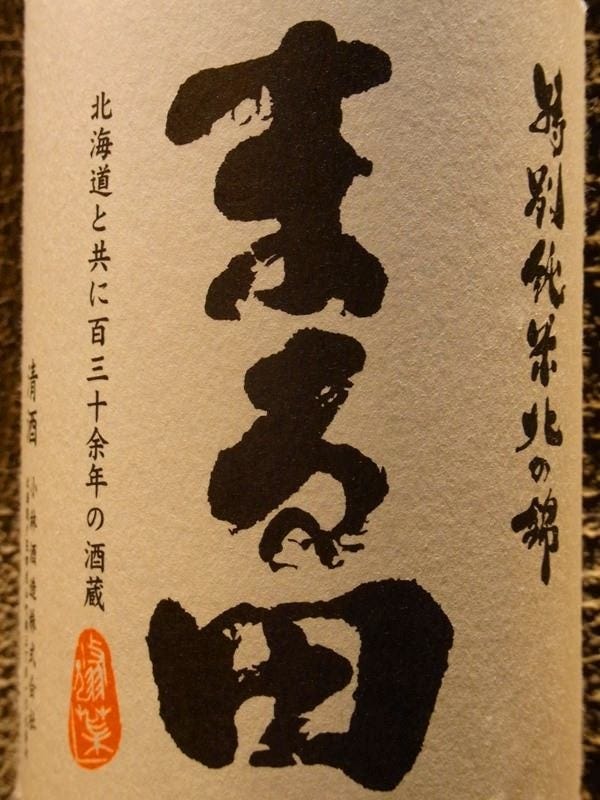 特別純米北の錦
まる田
北海道と共に百三十余年の酒蔵
清酒
小林酒造株式会社